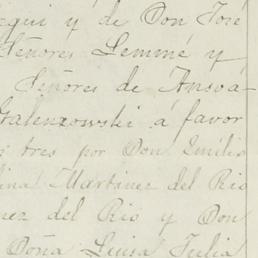 y de Don José
Señores Lemmé y
Señores de Ansoá-
Galenzowski á favor
tres por Don Emilio
Martinez del Rio
nez del Rio y Don
Doña Luisa Julia